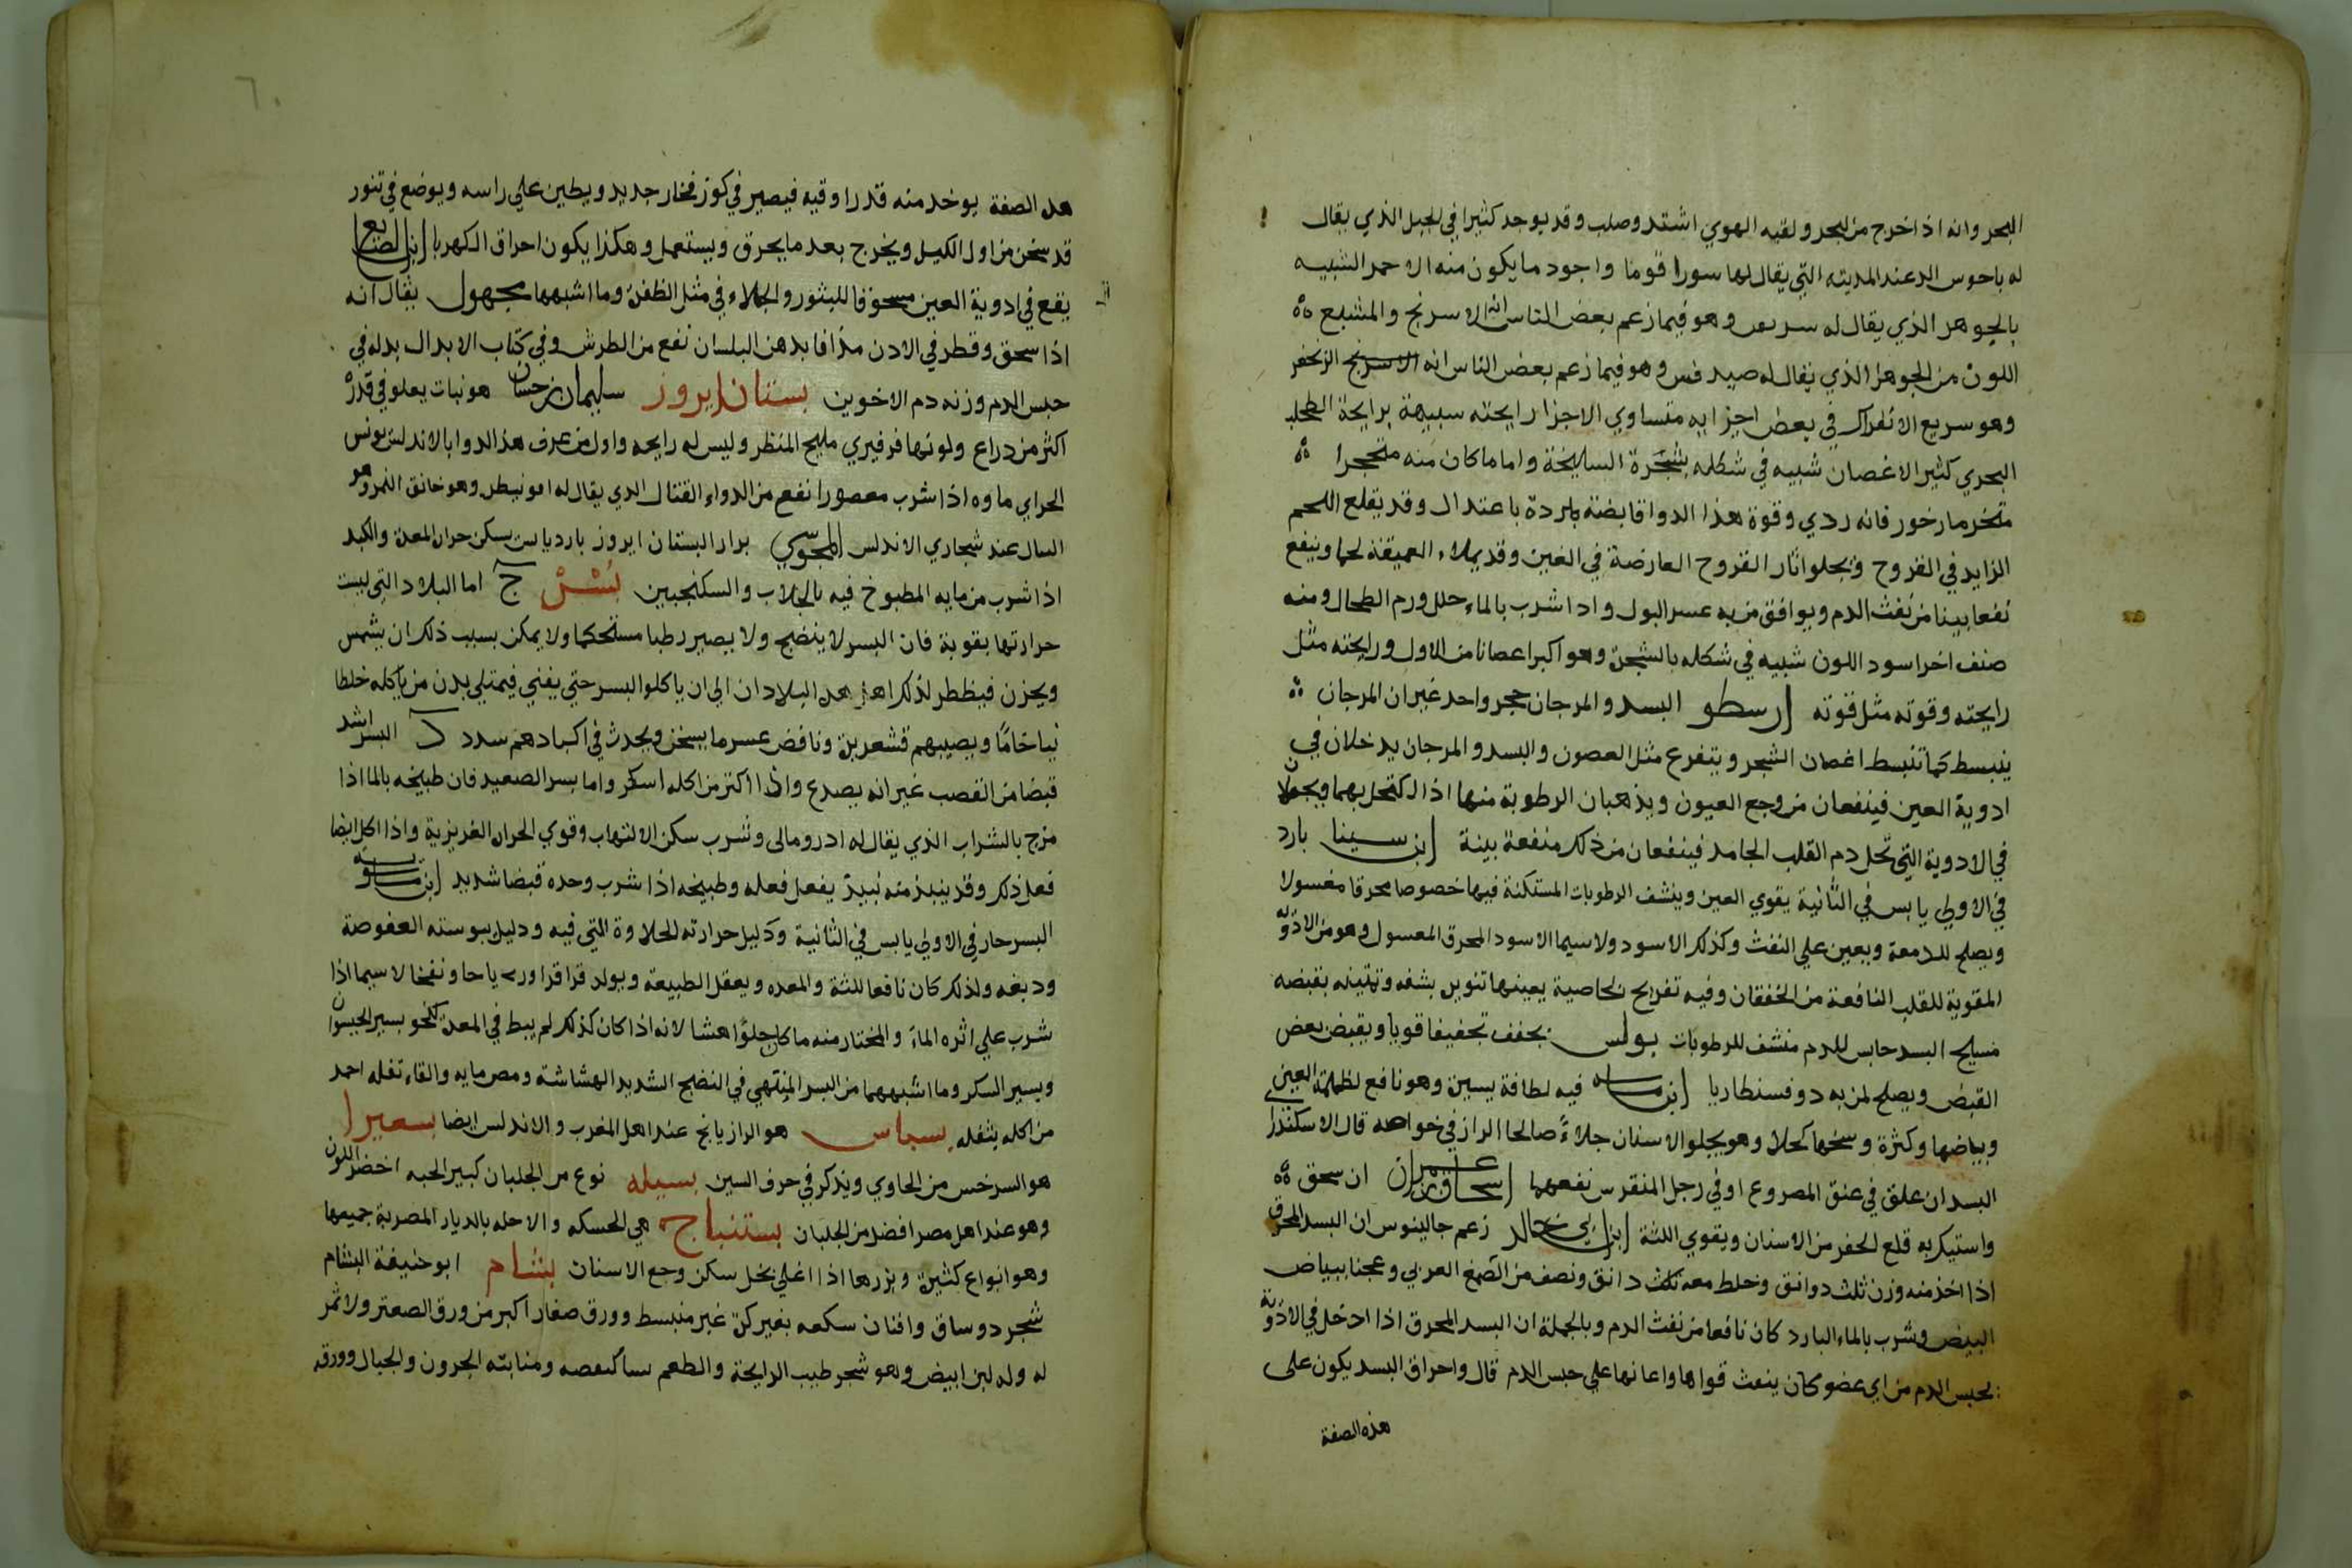 البحر وانه اذا خرج من البحر ولقيه الهوي اشتد وصلب وقد يوجد كثيرا في الجبل الذي يقال
له باحوس الد عند المدينه التي يقال لها سورا قوما واجود ما يكون منه الاحمر الشبيه
بالجوهر الذي يقال له وهو فيما زعم بعض الناس انه الاسرنج والمشبع
اللون من الجوهر الذي يقال له وهو فيما زعم بعض الناس انه الاسرنج الزنجفر
وهو سريع الانفراك في بعض اجزايه متساوي الاجزا رايحته سبيهة برايحة الطحلب
البحري كثير الاغصان شبيه في شكله بشجرة السليخة واما ما كان منه متحجرا
فانه ردي وقوة هذا الدوا قابضة باردة باعتدال وقد يقلع اللحم
الزايد في القروح ويجلوا اثار القروح العارضة في العين وقد يملاء العميقة لحما وينفع
نفعا بينا من نفث الدم ويوافق من به عسر البول واذا شرب بالماء حلل ورم الطحال ومنه
صنف اخر اسود اللون شبيه في شكله بالشجرة وهو اكبر اعصانا من الاول ورايحته مثل
رايحته وقوته مثل قوته ارسطو البسد والمرجان حجر واحد غير ان المرجان
ينبسط كما تنبسط اغصان الشجر ويتفرع مثل العصون والبسد والمرجان يدخلان في
ادوية العين فينفعان من وجع العيون ويذهبان الرطوبة منها اذا اكتحل بهما ويجعلان
في الادوية التي تحل دم القلب الجامد فينفعان من ذلك منفعة بينة ابن سينا بارد
في الاولي يابس في الثانية يقوي العين وينشف الرطوبات المستكنة فيها خصوصا محرقا مغسولا
ويصلح للدمعة ويعين علي النفث وكذلك الاسود ولاسيما الاسود المحرق المعسول وهو من الادوية
المقوية للقلب النافعة من الخفقان وفيه تفريح لخاصية يعينها تنوير بشفه وتمتينه بقبضه
مسيح البسد حابس للدم منشف للرطوبات بولس يجفف تجفيفا قويا ويقبض بعض
القبض ويصلح لمن به دوفسنطاريا ابن ماسه فيه لطافة يسيرة وهو نافع لظلمة العين
وبياضها وكثرة وسخها كحلا وهو يجلو الاسنان جلاءً صالحا الرازي في خواصه قال الاسكندر
البسد ان علق في عنق المصروع او في رجل المنقرس نفعهما اسحاق بن عمران ان سحق
واستيك به قلع الحفر من الاسنان ويقوي اللثة ابن ابي خالد زعم جالينوس ان البسد المحرق
اذا اخذ منه وزن ثلث دوانق وخلط معه ثلث دانق ونصف من الصمغ العربي وعجنا ببياض
البيض وشرب بالماء البارد كان نافعا من نفث الدم وبالجملة ان البسد المحرق اذا ادخل في الادوية
لحبس الدم من اي عضو كان ينعث قواها واعانها علي حبس الدم قال واحراق البسد يكون على
هذه الصفة
هده الصفة يوخد منه قدر اوقيه فيصير في كوز فخار جديد ويطين علي راسه ويوضع في تنور
قد سخن من اول الليل ويخرج بعد ما يحرق ويستعمل وهكذا يكون احراق الكهربا ابن الصايغ
يقع في ادوية العين مسحوقا للبثور والجلاء في مثل الظفرة وما اشبهها مجهول يقال انه
اذا سحق وقطر في الادن مدافا بدهن البلسان نفع من الطرش وفي كتاب الابدال بدله في
حبس الدم وزنه دم الاخوين بستان ابروز سليمان بن حسان هو نبات يعلو في قدر
اكثر من دراع ولونها فرفيري مليح المنظر وليس له رايحه واول من عرف هذا الدوا بالاندلس يونس
الحراي ماوه اذا شرب معصورا نفع من الدواء القتال الدي يقال له وهو خانق النمر وهو
السال عند شجاري الاندلس المجوسي بزر البستان ابروز بارد يابس يسكن حرارة المعدة والكبد
اذا شرب من مايه المطبوخ فيه بالجلاب والسكنجبين بُسْرْ ج اما البلاد التي ليست
حرارتها بقوية فان البسر لا ينضج ولا يصير رطبا مستحكما ولا يمكن بسبب ذلك ان يشمس
ويحزن فيظطر لذلك اهل هده البلدان الي ان ياكلوا البسر حتي يفني فيمتلي بدن من ياكله خلطا
نيا خامًا ويصيبهم قشعريرة ونافض عسر ما يسخن ويحدث في اكبادهم سدد د البسر اشد
قبضا من القصب غير انه يصدع واذا اكثر من اكله اسكر واما بسر الصعيد فان طبيخه بالما اذا
مزج بالشراب الذي يقال له ادرومالى وشرب سكن الالتهاب وقوي الحرارة الغريزية واذا اكل ايضا
فعل ذلك وقد ينبذ منه نبيذ يفعل فعله وطبيخه اذا شرب وحده قبضا شديد ابن ماسويه
البسر حار في الاولي يابس في الثانية ودليل حرارته الحلاوة التي فيه ودليل يبوسته العفوصة
ودبغه ولذلك كان نافعا للثة والمعده ويعقل الطبيعة ويولد قراقر ورياحا ونفخا لاسيما اذا
شرب علي اثره الماء والمختار منه ما كان حلوًا هشا لانه اذا كان كذلك لم يبط في المعدة كنحو بسر الجيسوان
وبسر السكر وما اشبههما من البسر المنتهي في النضج الشديد الهشاشة ومص مايه والقاء تفله احمد
من اكله بثفله بسباس هو الرازيانج عند اهل المغرب والاندلس ايضا بسعيرا
هو السرخس من الحاوي ويذكر في حرف السين بسيله نوع من الجلبان كبير الحبه اخضر اللون
وهو عند اهل مصر افضل من الجلبان بستنباج هي الحسكه والاخله بالديار المصرية جميعها
وهو انواع كثيرة وبزرها اذا اغلي بخل سكن وجع الاسنان بشام ابو حنيفة البشام
شجر دو ساق وافنان بغير كرة غير منبسط وورق صغار اكبر من ورق الصعتر ولا ثمر
له وله لبن ابيض وهو شجر طيب الرايحة والطعم ومنابته الحزون والجبال وورقه